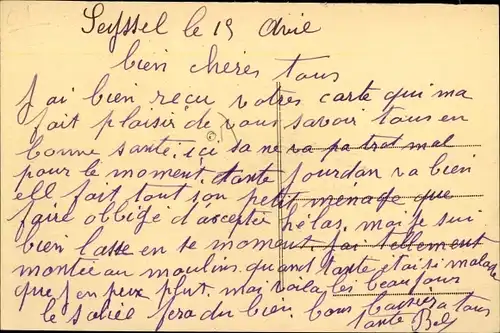 Seyssel le 19 Avril
bien chères tous
j'ai bien reçu votres carte qui ma
fait plaisir de vous savoir tous en
bonne santé. ici sa ne va pa trot mal
pour le moment. tante Jourdan va bien
ell fait tout son petit ménage que
faire obbigé d'acceptée hélas. mai je sui
bien lasse en se moment. j'ai tellement
montée au moulins. quant tante étai si malade
que j'en peux plut. mai voila les beaux jour
le soliel fera du bien. bons baisers a tous
tante Bel